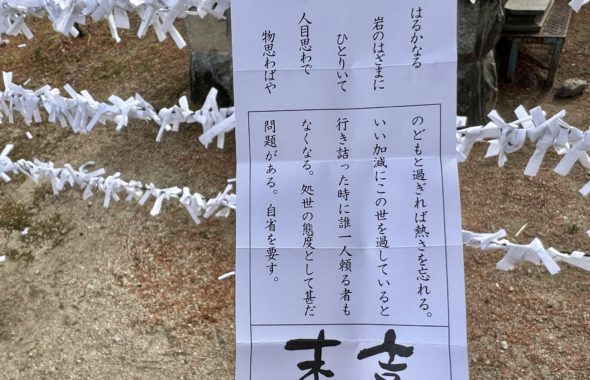 はるかなる
岩のはざまに
ひとりいて
人目思わで
物思わばや
のどもと過ぎれば熱さを忘れる。
いい加減にこの世を過していると
行き詰った時に誰一人頼る者も
なくなる。処世の態度として甚だ
問題がある。自省を要す。
吉
末